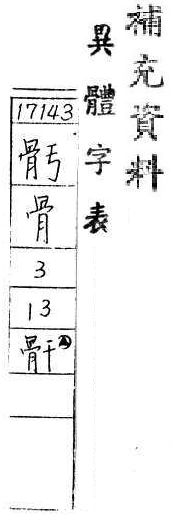 補充資料
異體字表
17143
骨
3
13
骭